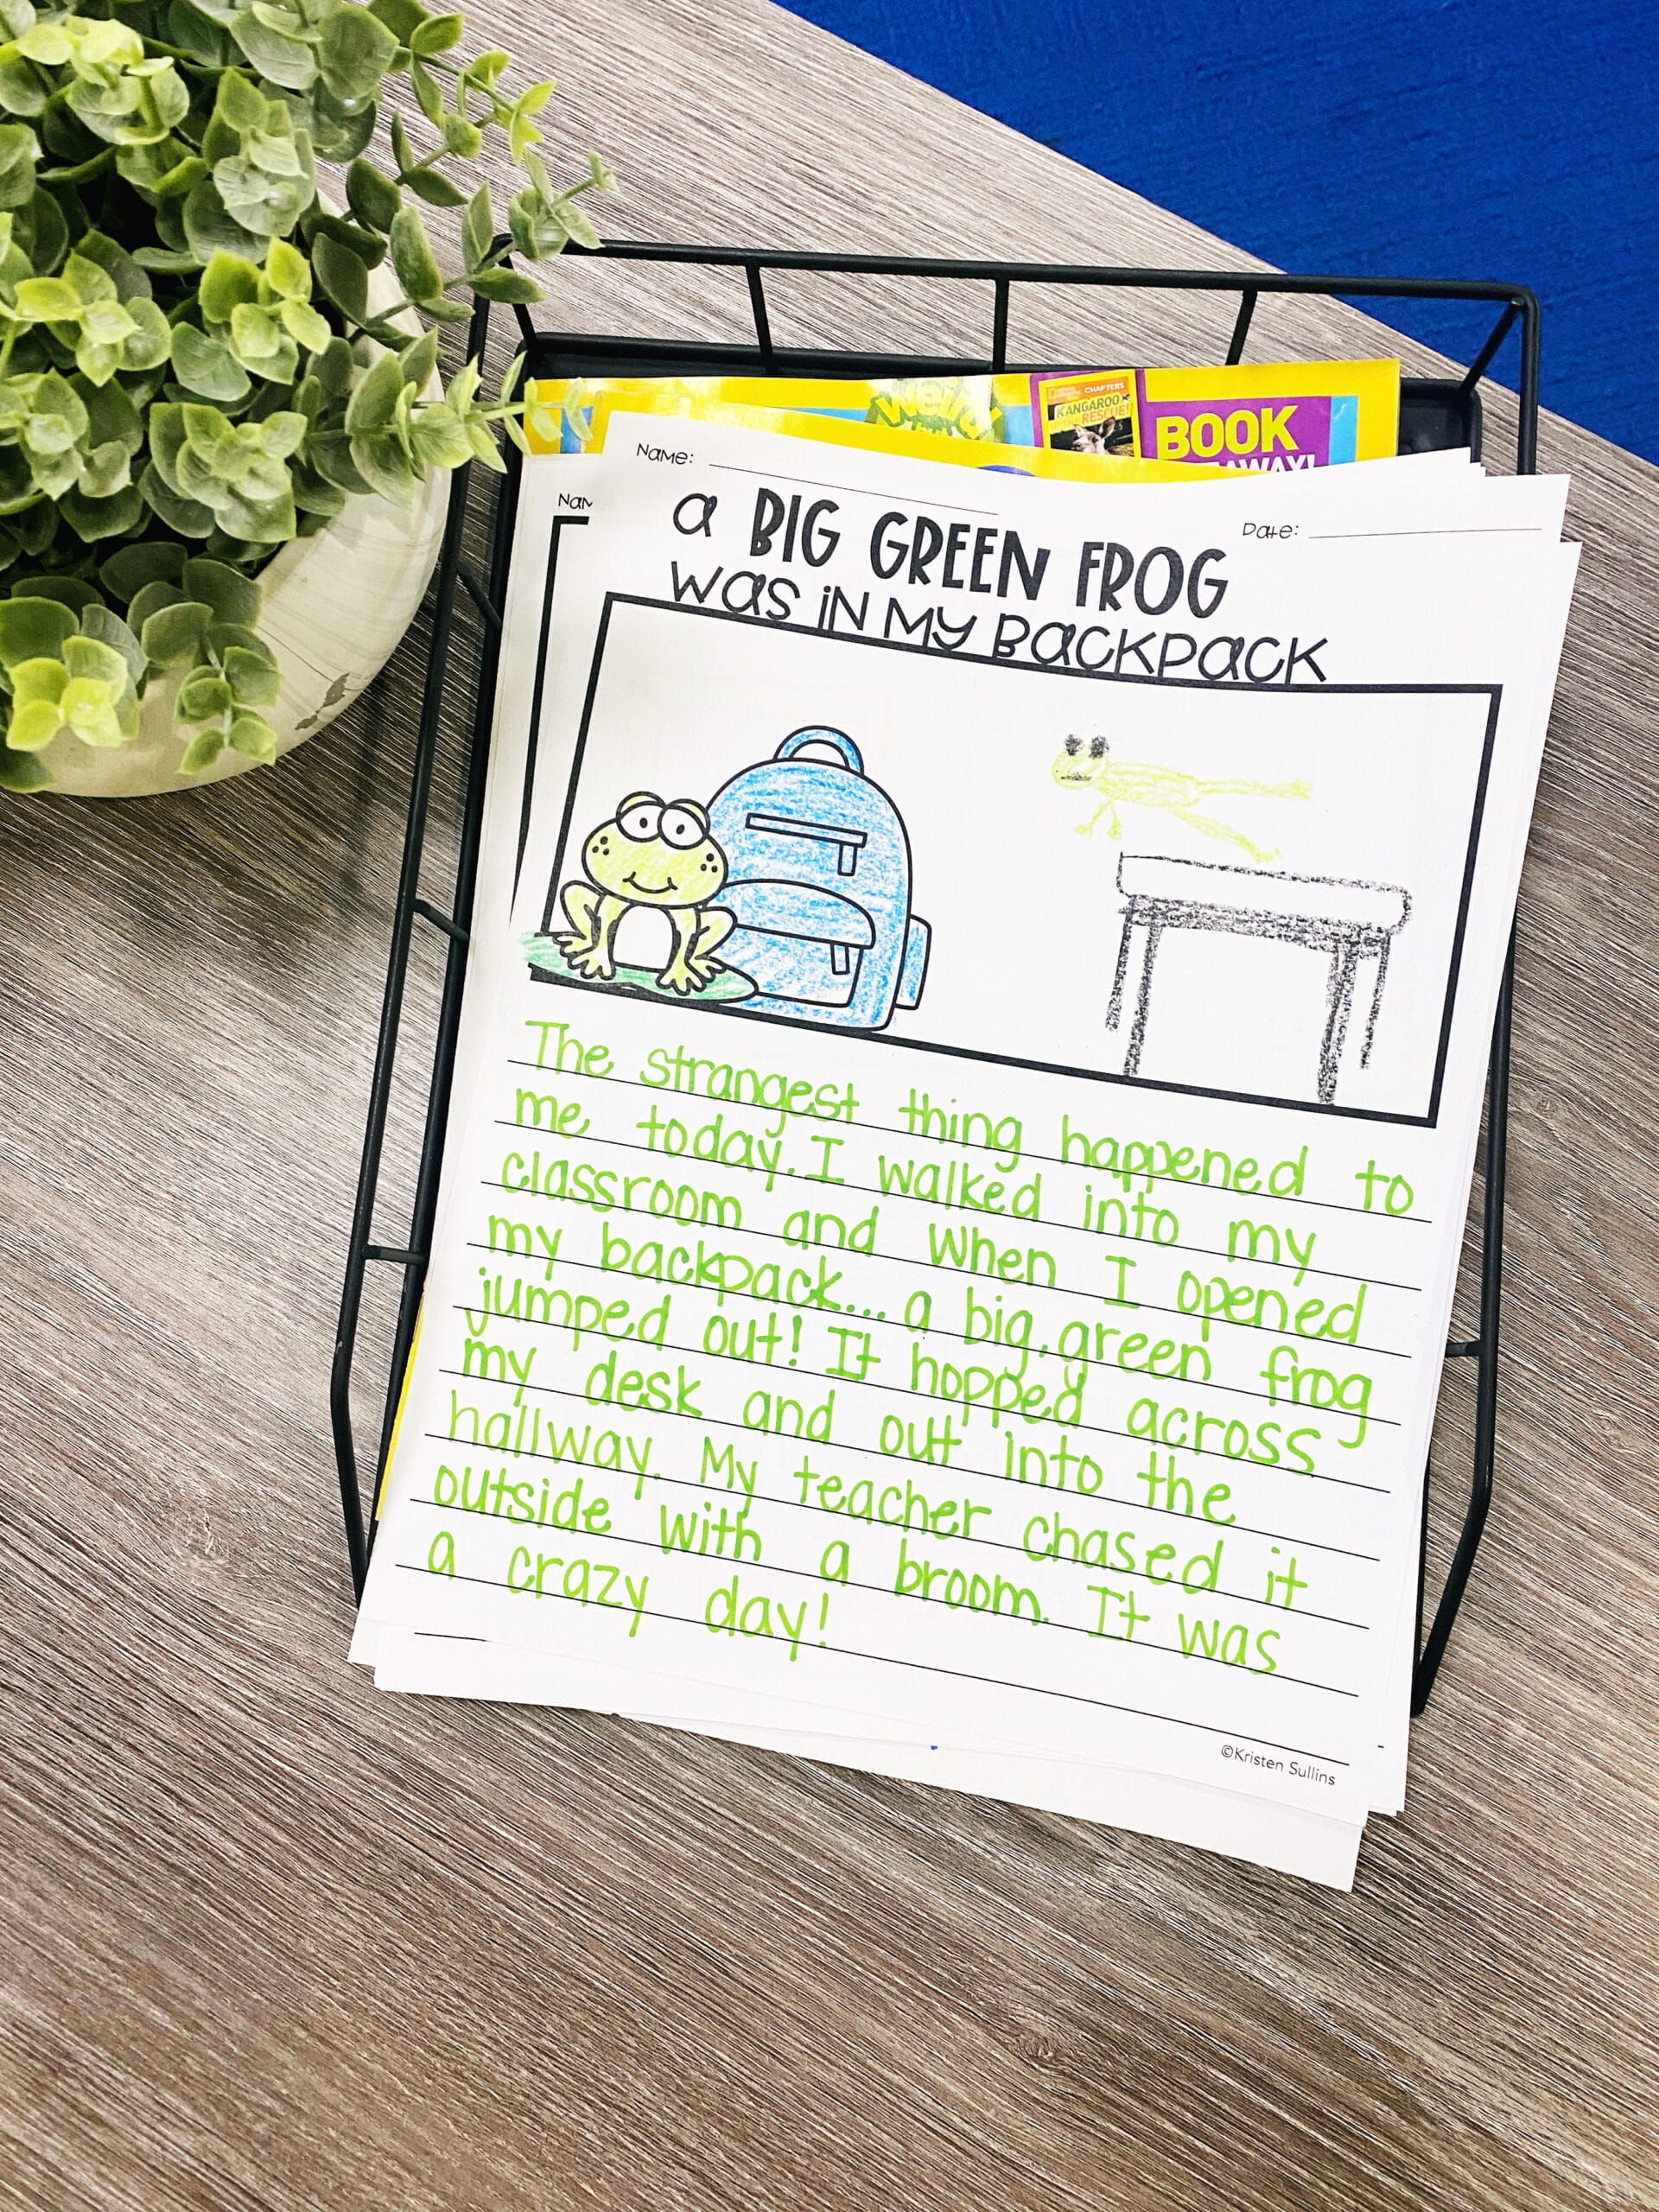 weird
CHAPTERS
KANGAROO
RESCUE!
BOOK
Name:
Nam
Date:
a BIG GREEN FROG
was in my Backpack
The strangest thing happened to
me today. I walked into my
classroom and when I opened
my backpack... a big, green frog
jumped out! It hopped across
my desk and out into the
hallway. My teacher chased it
outside with a broom. It was
a crazy day!
©Kristen Sullins